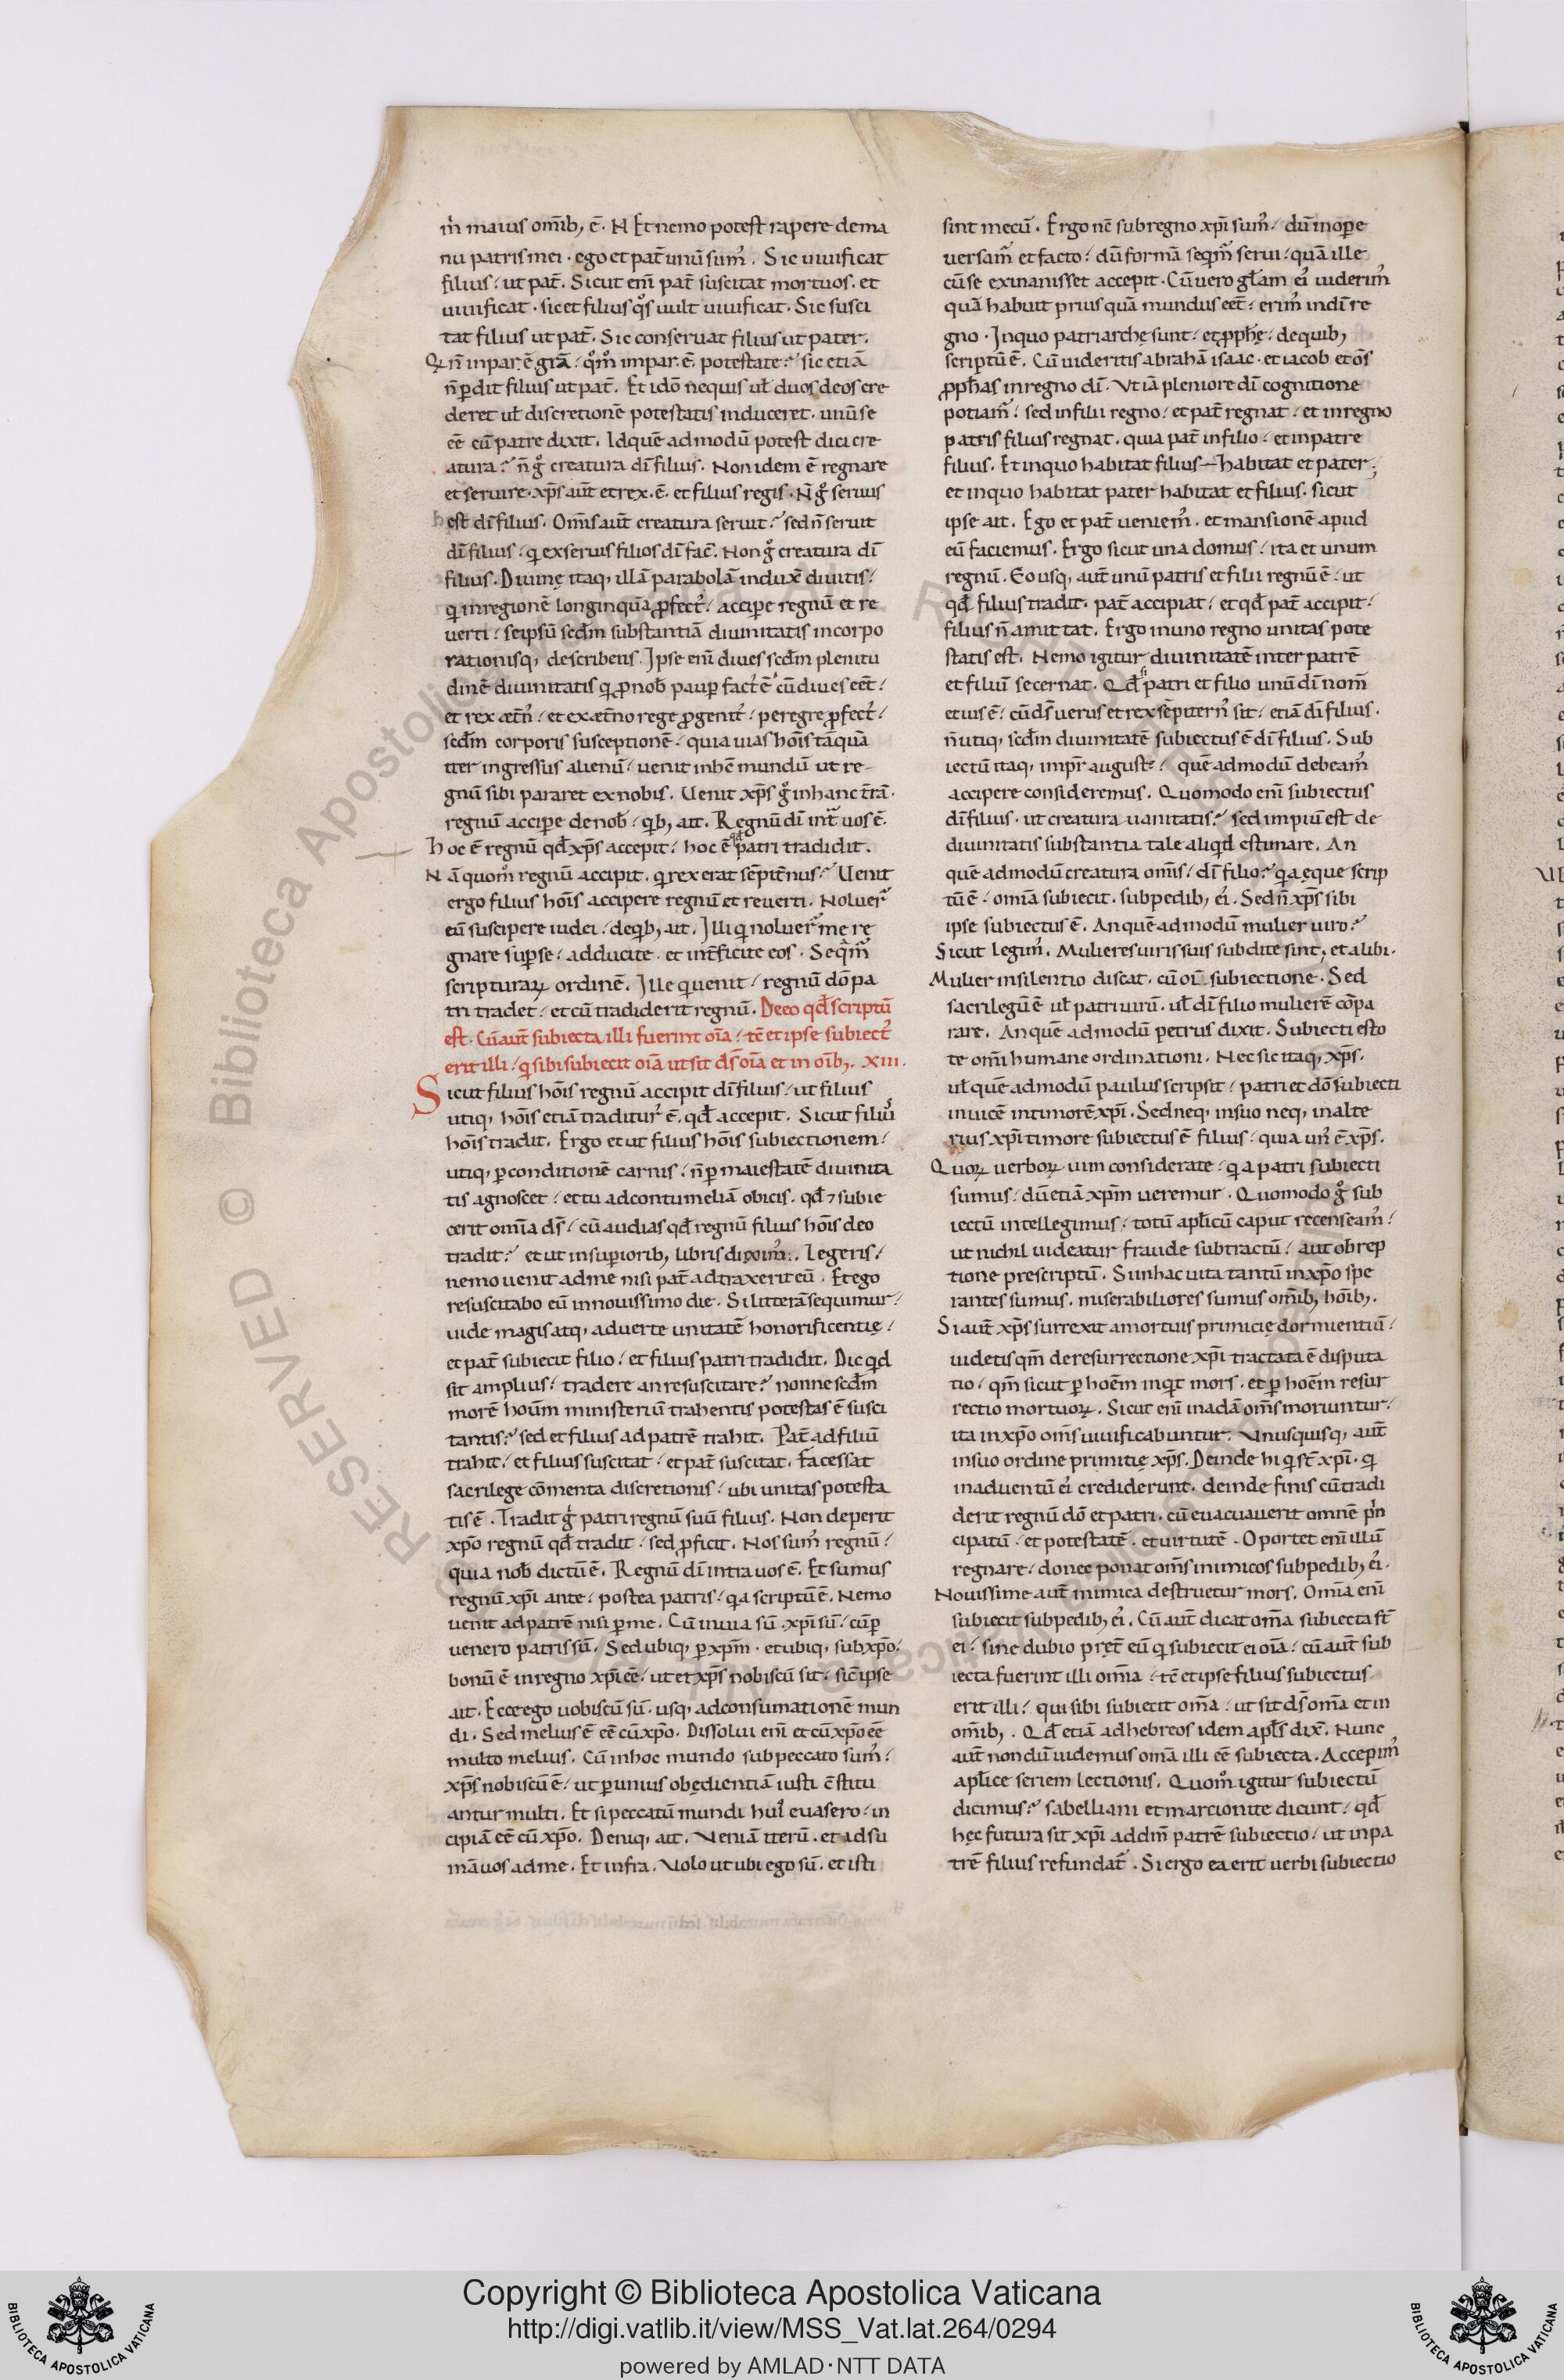 m̉ maius om̅ib; ē. N Et nemo potest rapere de ma
nu patris mei. ego et pat̅ unū sum᷒. Sic uiuificat
filius / ut pat̅. Sicut eni̅ pat̅ suscitat mortuos. et
uiuificat. sic et filius q̊s uult uiuificat. Sic susci
tat filius ut pat̅. Sic conseruat filius ut pater.
Qͥ n̅ inpar ē gr̅a / q̊m̊ impar ē potestate? sic etiā
n̅ ꝑdit filius ut pat̅. Et idō nequis ul̅ duos deos cre
deret ul̅ discretionē potestatis induceret. unū se
ee̅ cū patre dixit. Id quē admodū potest dici cre
atura? n̅ g̊ creatura di̅ filius. Non idem ē regnare
et seruire. xp̅s aut̅ et rex. ē. et filius regis. N̅ g̊ seruus
est di̅ filius. Om̅s aut̅ creatura seruit? sed n̅ seruit
di̅ filius / qͥ ex seruis filios di̅ fac̅. Non g̊ creatura di̅
filius. Diuine itaq; illā parabolā indux̅ diuitis /
qͥ in regionē longinquā ꝓfect᷒ / accipe regnū et re
uerti / seipsū scd̅m substantiā diuinitatis incorpo
rationisq; describens. Ipse eni̅ diues scd̅m plenitu
dinē diuinitatis qͥ ꝓ nob̅ paup̅ fact᷒ ē cū diues ee̅t /
et rex æt̅n᷒ / et ex æt̅no rege ꝓgenit᷒ / peregre ꝓfect᷒ /
scd̅m corporis susceptionē / quia uias ho̅is tāquā
iter ingressus alienū / uenit in hē mundū ut re-
gnū sibi pararet ex nobis. Uenit xp̅s g̊ in hanc t̅rā.
regnū accipe de nob̅ / qͥb; ait. Regnū di̅ int̅ uos ē.
Hoc ē regnū qd̅ xp̅s accepit / hoc ē qd̅ patri tradidit.
Nā quom̊ regnū accipit. qͥ rex erat sēpit̅nus? Uenit
ergo filius ho̅is accipere regnū et reuerti. Noluer̅
eū suscipere iudei / de qͥb; ait. Illi qͥ noluer̅ me re
gnare sup̅ se / adducite. et int̅ficite eos. Seqͣm̅
scripturaꝝ ordinē. Ille qͥ uenit / regnū dō pa
tri tradet / et cū tradiderit regnū. De eo qd̅ scriptū
est. Cū aut̅ subiecta illi fuerint oi̅a / tē et ipse subiect᷒
erit illi / qͥ sibi subiecit oi̅a ut sit ds̅ oi̅a et in oi̅b;. XIII.
Sicut filius ho̅is regnū accipit di̅ filius / ut filius
utiq; ho̅is etiā traditur᷒ ē. qd̅ accepit. Sicut filiu᷒
ho̅is tradit. Ergo et ut filius ho̅is subiectionem /
utiq; ꝑ conditionē carnis / n̅ ꝑ maiestatē diuinita
tis agnoscet / et tu ad contumeliā obicis. qd̅ ei subie
cerit om̅ia ds̅ / cū audias qd̅ regnū filius ho̅is deo
tradit? et ut in suꝑiorib; libris dixim᷒. Legeris /
nemo uenit ad me nisi pat̅ adtraxerit eū. Et ego
resuscitabo eū in nouissimo die. Si litterā sequimur /
uide magis atq; aduerte unitatē honorificentię /
et pat̅ subiecit filio / et filius patri tradidit. Dic qͥd
sit amplius / tradere an resuscitare? nonne scd̅m
morē hoi̅um ministeriū trahentis potestas ē susci
tantis? sed et filius ad patrē trahit. Pat̅ ad filiū
trahit / et filius suscitat / et pat̅ suscitat. Facessat
sacrilege cōmenta discretionis / ubi unitas potesta
tis ē. Tradit g̊ patri regnū suū filius. Non deperit
xp̅o regnū qd̅ tradit / sed ꝓficit. Nos sum᷒ regnū /
quia nob̅ dictū ē. Regnū di̅ intra uos ē. Et sumus
regnū xp̅i ante / postea patris / qͥa scriptū ē. Nemo
uenit ad patrē nisi ꝑ me. Cū in uia sū. xp̅i sū / cū ꝑ
uenero patris sū. Sed ubiq; ꝑ xp̅m. et ubiq; sub xp̅o.
bonū ē in regno xp̅i ee̅ / ut et xp̅s nobiscū sit / sic̅ ipse
ait. Ecce ego uobiscū sū. usq; ad consumationē mun
di. Sed melius ē ee̅ cū xp̅o. Dissolui eni̅ et cū xp̅o ee̅
multo melius. Cū in hoc mundo sub peccato sum᷒ /
xp̅s nobiscū ē / ut ꝑ unius obędientiā iusti c̅stitu
antur multi. Et si peccatū mundi hui᷒ euasero / in
cipiā ee̅ cū xp̅o. Deniq; ait. Veniā iterū. et adsu
mā uos ad me. Et infra. Uolo ut ubi ego sū. et isti
sint mecū. Ergo nē sub regno xp̅i sum᷒ / dū in ope
uersam̅ et facto / dū formā seqͥm̅ serui / quā ille
cū se exinanisset accepit. Cū uero gl̅am ei᷒ uiderim᷒
quā habuit prius quā mundus ee̅t / erim᷒ in di̅ re
gno. In quo patriarchę sunt / et ꝓph̅ę / de quib;
scriptū ē. Cū uideritis abrahā isaac. et iacob et om̅s
ꝓph̅as in regno di̅. Ut iā pleniore di̅ cognitione
potiam̅ / sed in filii regno / et pat̅ regnat / et in regno
patris filius regnat. quia pat̅ in filio / et in patre
filius. Et in quo habitat filius — habitat et pater;
et in quo habitat pater habitat et filius. sicut
ipse ait. Ego et pat̅ ueniem᷒. et mansionē apud
eū faciemus. Ergo sicut una domus / ita et unum
regnū. Eo usq; aut̅ unū patris et filii regnū ē / ut
qd̅ filius tradit. pat̅ accipiat / et qd̅ pat̅ accipit /
filius n̅ amittat. Ergo in uno regno unitas pote
statis est. Nemo igitur diuinitatē inter patrē
et filiū secernat. Qd̅ si patri et filio unū di̅ nom̅
et ius ē / cū ds̅ uerus et rex sepitern᷒ sit / etiā di̅ filius.
n̅ utiq; scd̅m diuinitatē subiectus ē di̅ filius. Sub
iectū itaq; impr̅ auguste / quē admodū debeam᷒
accipere consideremus. Quomodo eni̅ subiectus
di̅ filius. ut creatura uanitatis? sed impiū est de
diuinitatis substantia tale aliqͥd estimare. An
quē admodū creatura omīs / di̅ filio? qͥa ęque scrip
tū ē / omīa subiecit. sub pedib; ei᷒. Sed n̅ xp̅s sibi
ipse subiectus ē. An quē admodū mulier uiro?
Sicut legim᷒. Mulieres uiris suis subdite sint. et alibi.
Mulier in silentio discat. cū oi̅ subiectione. Sed
sacrilegū ē ul̅ patri uirū. ul̅ di̅ filio mulierē cōpa
rare. An quē admodū petrus dixit. Subiecti esto
te omi̅ humane ordinationi. Nec sic itaq; xp̅s.
ul̅ quē admodū paulus scripsit / patri et dō subiecti
inuicē in timorē xp̅i. Sed neq; in suo neq; in alte
rius xp̅i timore subiectus ē filius / quia un᷒ ē xp̅s.
Quoꝝ uerboꝝ uim considerate / qͥa patri subiecti
sumus / dū etiā xp̅m ueremur. Quomodo g̊ sub
iectū intellegimus / totū apl̅icū caput recenseam᷒ /
ut nichil uideatur fraude subtractū / aut obrep
tione prescriptū. Si in hac uita tantū in xp̅o spe
rantes sumus. miserabiliores sumus om̅ib; ho̅ib;.
Si aut̅ xp̅s surrexit a mortuis primicię dormientiū /
uidetis qm̅ de resurrectione xp̅i tractata ē disputa
tio / qm̅ sicut ꝑ hoēm inqͥt mors. et ꝑ hoēm resur
rectio mortuoꝝ. Sicut eni̅ in adā om̅s moriuntur /
ita in xp̅o om̅s uiuificabuntur. Unusquisq; aut̅
in suo ordine primitię xp̅s. Deinde hi qͥ st̅ xp̅i. qͥ
in aduentū ei᷒ crediderunt. deinde finis cū tradi
derit regnū dō et patri. cū euacuauerit omnē pͥn
cipatū. et potestatē. et uirtutē. Oportet eni̅ illū
regnare / donec ponat om̅s inimicos sub pedib; ei᷒.
Nouissime aut̅ inimica destruetur mors. Omīa eni̅
subiecit sub pedib; ei᷒. Cū aut̅ dicat omīa subiecta st̅
ei / sine dubio pręt̅ eū qͥ subiecit ei oi̅a / cū aut̅ sub
iecta fuerint illi omīa / tē et ipse filius subiectus
erit illi / qui sibi subiecit omīa / ut sit ds̅ omīa et in
om̅ib;. Qd̅ etiā ad hebreos idem apl̅s dix̅. Nunc
aut̅ nondū uidemus omīa illi ee̅ subiecta. Accepim᷒
apl̅ice seriem lectionis. Quom̊ igitur subiectū
dicimus? sabelliani et marcionite dicunt / qd̅
hęc futura sit xp̅i ad dm̅ patrē subiectio / ut in pa
trē filius refundat̅. Si ergo ea erit uerbi subiectio
Copyright © Biblioteca Apostolica Vaticana
http://digi.vatlib.it/view/MSS_Vat.lat.264/0294
powered by AMLAD·NTT DATA
BIBLIOTECA APOSTOLICA VATICANA
BIBLIOTECA APOSTOLICA VATICANA